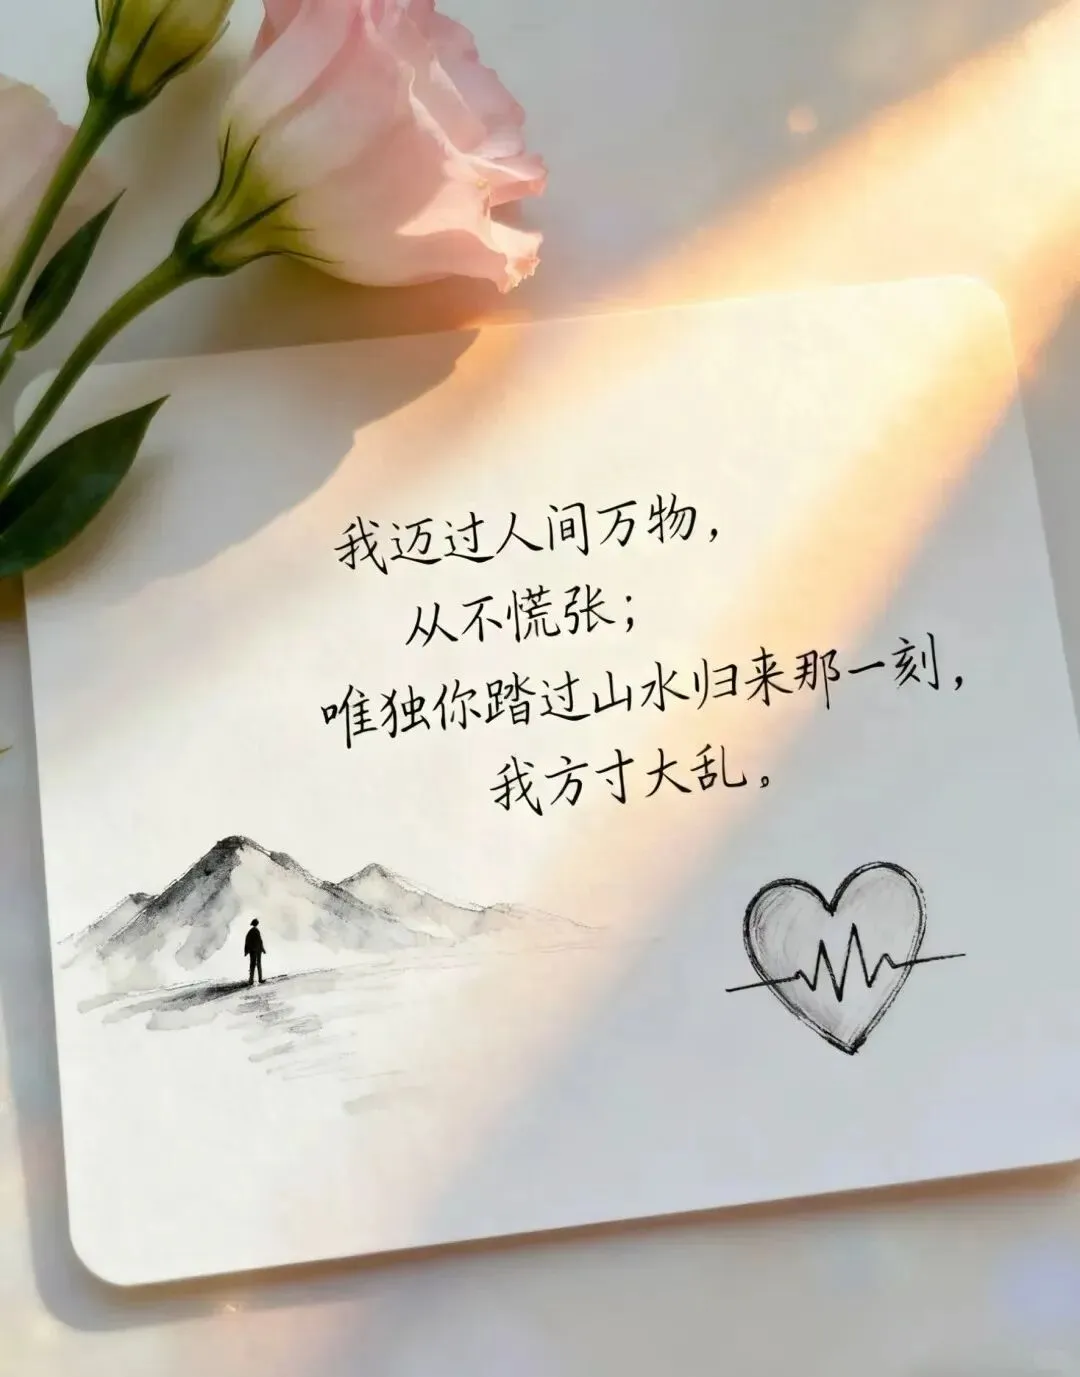 我迈过人间万物，
从不慌张；
唯独你踏过山水归来那一刻，
我方寸大乱。